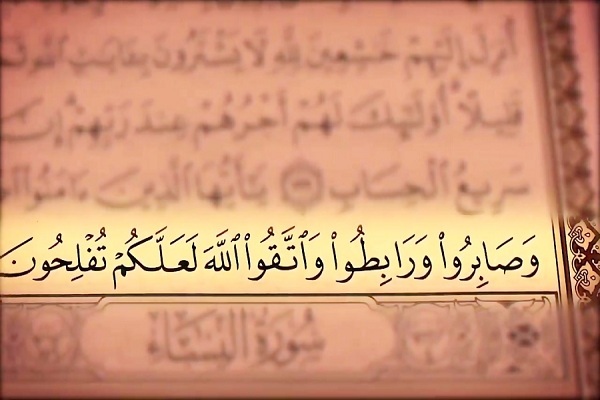 أُنزِلَ إِلَيْهِمْ خَٰشِعِينَ لِلَّهِ لَا يَشْتَرُونَ بِـَٔايَٰتِ ٱللَّهِ
قَلِيلًا أُو۟لَٰٓئِكَ لَهُمْ أَجْرُهُمْ عِندَ رَبِّهِمْ إِنَّ
سَرِيعُ ٱلْحِسَابِ ١٩٩ يَٰٓأَيُّهَا ٱلَّذِينَ ءَامَنُوا۟
وَصَابِرُوا۟ وَرَابِطُوا۟ وَٱتَّقُوا۟ ٱللَّهَ لَعَلَّكُمْ تُفْلِحُونَ
سُورَةُ النِّسَاءِ